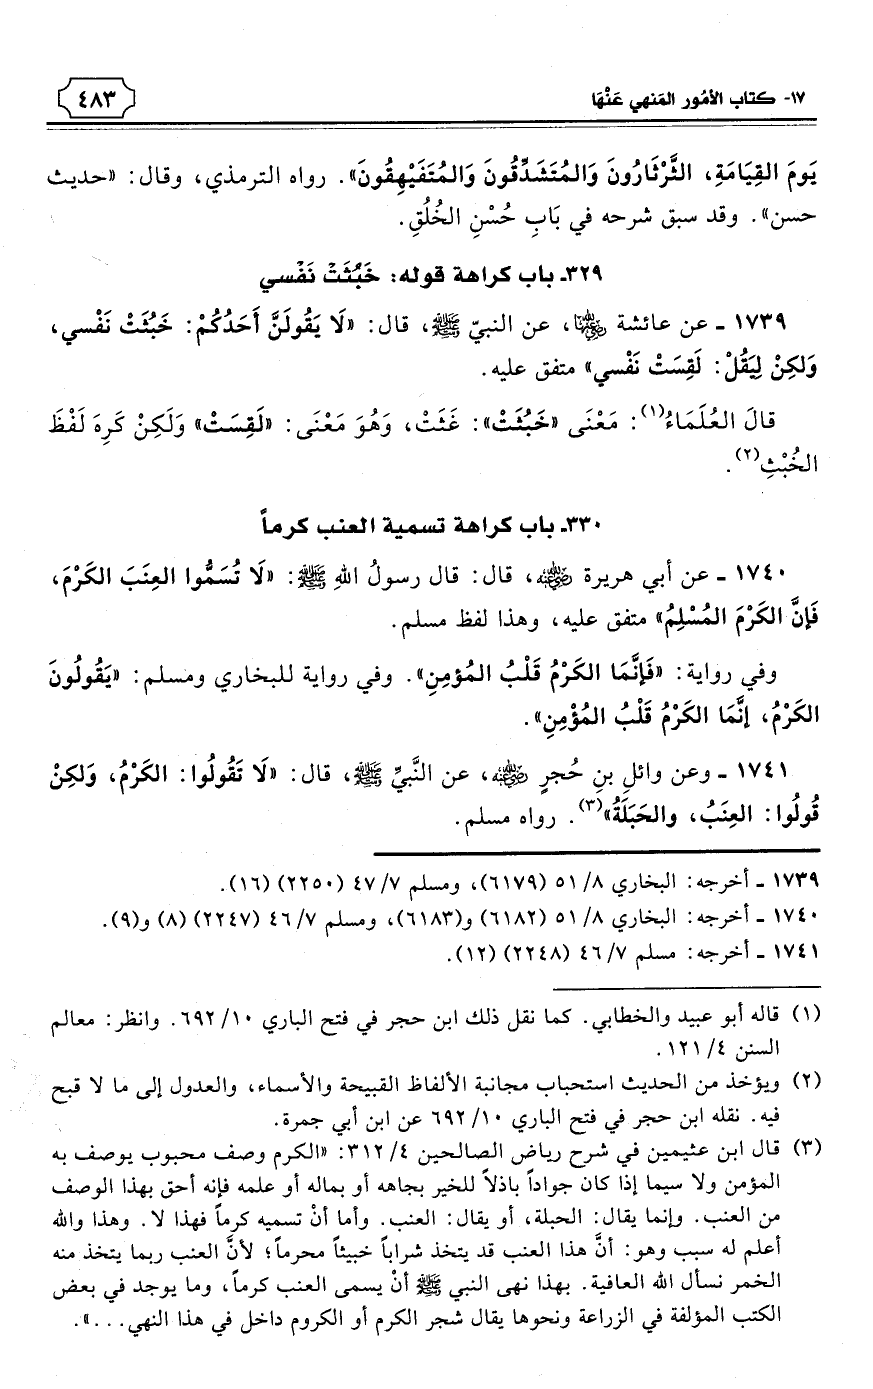 ١٧- كتاب الأمُور المَنهي عَنْهَا
٤٨٣
يَومَ القِيَامَةِ، الثَّرْثَارُونَ وَالمُتَشَدِّقُونَ وَالمُتَفَيْهِقُونَ». رواه الترمذي، وقال: «حديث
حسن». وقد سبق شرحه في بَابِ حُسْنِ الخُلُقِ.
٣٢٩ـ باب كراهة قوله: خَبُثَتْ نَفْسي
١٧٣٩ ـ عن عائشة رضي الله عنها، عن النبيّ ﷺ، قال: «لَا يَقُولَنَّ أَحَدُكُمْ: خَبُثَتْ نَفْسي،
وَلكِنْ لِيَقُلْ: لَقِسَتْ نَفْسي» متفق عليه.
قالَ العُلَمَاءُ(١): مَعْنَى «خَبُثَتْ»: غَثَتْ، وَهُوَ مَعْنَى: «لَقِسَتْ» وَلكِنْ كَرِهَ لَفْظَ
الخُبْثِ(٢).
٣٣٠ـ باب كراهة تسمية العنب كرماً
١٧٤٠ ـ عن أبي هريرة رضي الله عنه، قال: قال رسولُ اللهِ ﷺ: «لَا تُسَمُّوا العِنَبَ الكَرْمَ،
فَإنَّ الكَرْمَ المُسْلِمُ» متفق عليه، وهذا لفظ مسلم.
وفي رواية: «فَإنَّمَا الكَرْمُ قَلْبُ المُؤمِنِ». وفي رواية للبخاري ومسلم: «يَقُولُونَ
الكَرْمُ، إنَّمَا الكَرْمُ قَلْبُ المُؤْمِنِ».
١٧٤١ ـ وعن وائلِ بنِ حُجرٍ رضي الله عنه، عن النَّبيِّ ﷺ، قال: «لَا تَقُولُوا: الكَرْمُ، وَلكِنْ
قُولُوا: العِنَبُ، والحَبَلَةُ»(٣). رواه مسلم.
١٧٣٩ ـ أخرجه: البخاري ٨/ ٥١ (٦١٧٩)، ومسلم ٧/ ٤٧ (٢٢٥٠) (١٦).
١٧٤٠ ـ أخرجه: البخاري ٨/ ٥١ (٦١٨٢) و(٦١٨٣)، ومسلم ٧/ ٤٦ (٢٢٤٧) (٨) و(٩).
١٧٤١ ـ أخرجه: مسلم ٧/ ٤٦ (٢٢٤٨) (١٢).
(١) قاله أبو عبيد والخطابي. كما نقل ذلك ابن حجر في فتح الباري ١٠/ ٦٩٢. وانظر: معالم
السنن ٤/ ١٢١.
(٢) ويؤخذ من الحديث استحباب مجانبة الألفاظ القبيحة والأسماء، والعدول إلى ما لا قبح
فيه. نقله ابن حجر في فتح الباري ١٠/ ٦٩٢ عن ابن أبي جمرة.
(٣) قال ابن عثيمين في شرح رياض الصالحين ٤/ ٣١٢: «الكرم وصف محبوب يوصف به
المؤمن ولا سيما إذا كان جواداً باذلاً للخير بجاهه أو بماله أو علمه فإنه أحق بهذا الوصف
من العنب. وإنما يقال: الحبلة، أو يقال: العنب. وأما أنْ تسميه كرماً فهذا لا. وهذا والله
أعلم له سبب وهو: أنَّ هذا العنب قد يتخذ شراباً خبيثاً محرماً؛ لأنَّ العنب ربما يتخذ منه
الخمر نسأل الله العافية. بهذا نهى النبي ﷺ أنْ يسمى العنب كرماً، وما يوجد في بعض
الكتب المؤلفة في الزراعة ونحوها يقال شجر الكرم أو الكروم داخل في هذا النهي...».